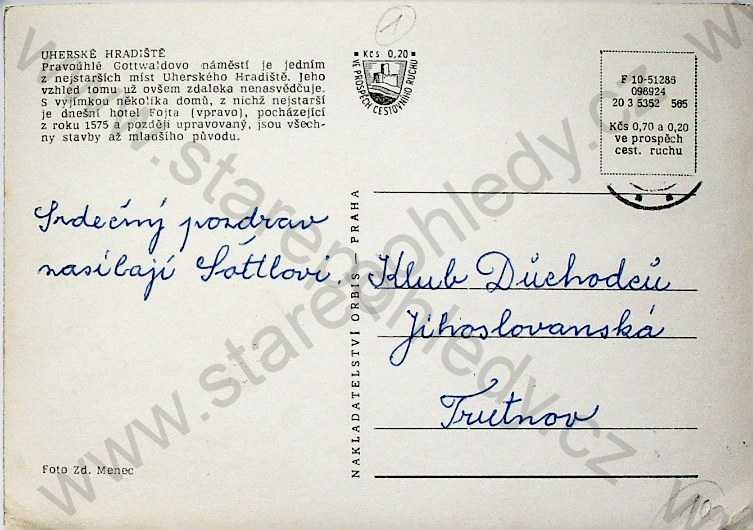 1
UHERSKÉ HRADIŠTĚ
Pravoúhlé Gottwaldovo náměstí je jedním
z nejstarších míst Uherského Hradiště. Jeho
vzhled tomu už ovšem zdaleka nenasvědčuje.
S výjimkou několika domů, z nichž nejstarší
je dnešní hotel Fojta (vpravo), pocházející
z roku 1575 a později upravovaný, jsou všech-
ny stavby až mladšího původu.
Kčs 0,20
VE PROSPĚCH CESTOVNÍHO RUCHU
F 10-51286
098924
20 3 5352 565
Kčs 0,70 a 0,20
ve prospěch
cest. ruchu
Srdečný pozdrav
nasílají Sóttlovi.
NAKLADATELSTVÍ ORBIS — PRAHA
Klub Důchodců
Jihoslovanská
Trutnov
Foto Zd. Menec
10
www.starepohledy.cz
www.starepohledy.cz